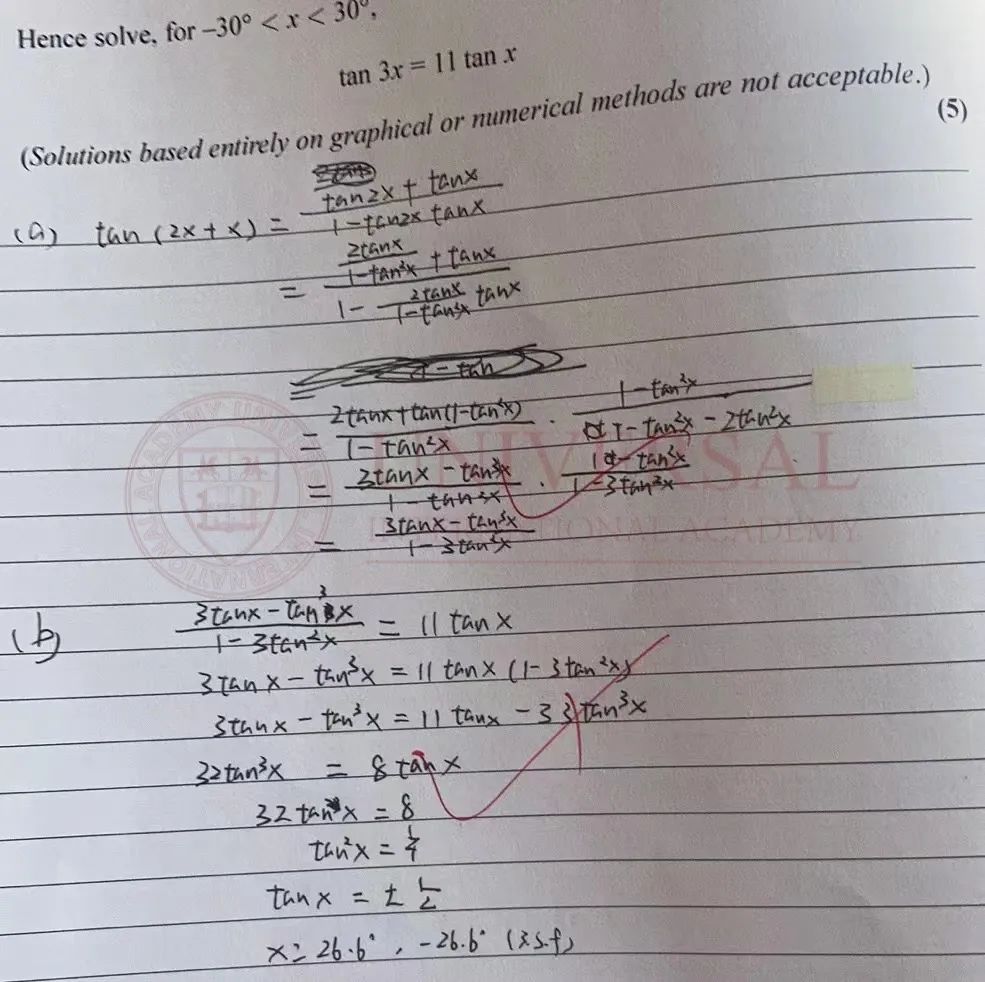 Hence solve, for –30° < x < 30°,
tan 3x = 11 tan x
(Solutions based entirely on graphical or numerical methods are not acceptable.)
(5)
(a) tan (2x + x) = (tan2x + tanx)/(1 - tan2x tanx)
= (2tanx/(1-tan²x) + tanx)/(1 - 2tanx/(1-tan²x) tanx)
= (2tanx + tan(1-tan²x))/(1-tan²x) · (1-tan²x)/(1-tan²x - 2tan²x)
= (3tanx - tan³x)/(1-tan²x) · (1-tan²x)/(1-3tan²x)
= (3tanx - tan³x)/(1-3tan²x)
UNIVERSAL
INTERNATIONAL ACADEMY
(b) (3tanx - tan³x)/(1-3tan²x) = 11 tanx
3tanx - tan³x = 11 tanx (1-3tan²x)
3tanx - tan³x = 11 tanx - 33tan³x
32tan³x = 8tanx
32tan²x = 8
tan²x = 1/4
tanx = ± 1/2
x = 26.6°, -26.6° (3s.f)